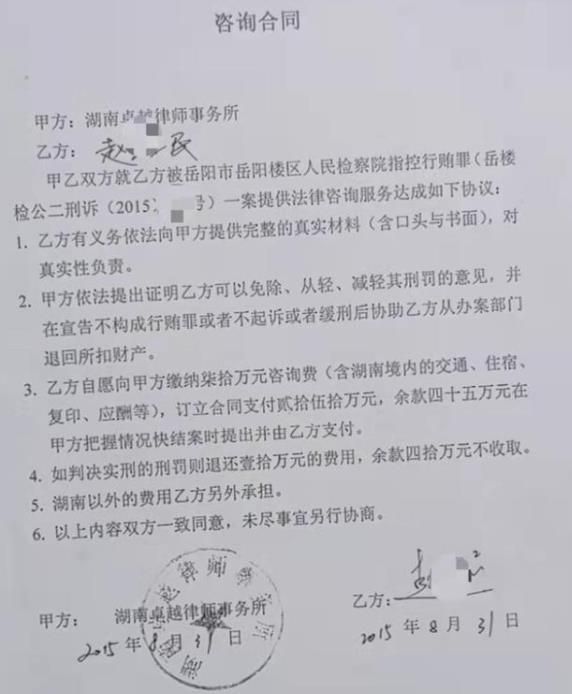 咨询合同
甲方：湖南卓越律师事务所
乙方：赵 民
甲乙双方就乙方被岳阳市岳阳楼区人民检察院指控行贿罪（岳楼
检公二刑诉（2015） 号）一案提供法律咨询服务达成如下协议：
1. 乙方有义务依法向甲方提供完整的真实材料（含口头与书面），对
真实性负责。
2. 甲方依法提出证明乙方可以免除、从轻、减轻其刑罚的意见，并
在宣告不构成行贿罪或者不起诉或者缓刑后协助乙方从办案部门
退回所扣财产。
3. 乙方自愿向甲方缴纳柒拾万元咨询费（含湖南境内的交通、住宿、
复印、应酬等），订立合同支付贰拾伍拾万元，余款四十五万元在
甲方把握情况快结案时提出并由乙方支付。
4. 如判决实刑的刑罚则退还壹拾万元的费用，余款四拾万元不收取。
5. 湖南以外的费用乙方另外承担。
6. 以上内容双方一致同意，未尽事宜另行协商。
甲方： 湖南卓越律师事务所
2015年8月31日
乙方：
2015年8月31日